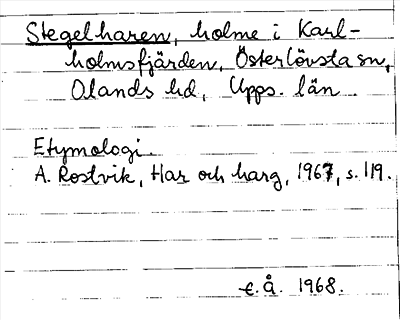 Stegelharen, holme i Karl-
holmsfjärden, Österlövsta sn,
Olands hd, Upps. län
Etymologi.
A. Rostvik, Har och harg, 1967, s. 119.
E.Å. 1968.